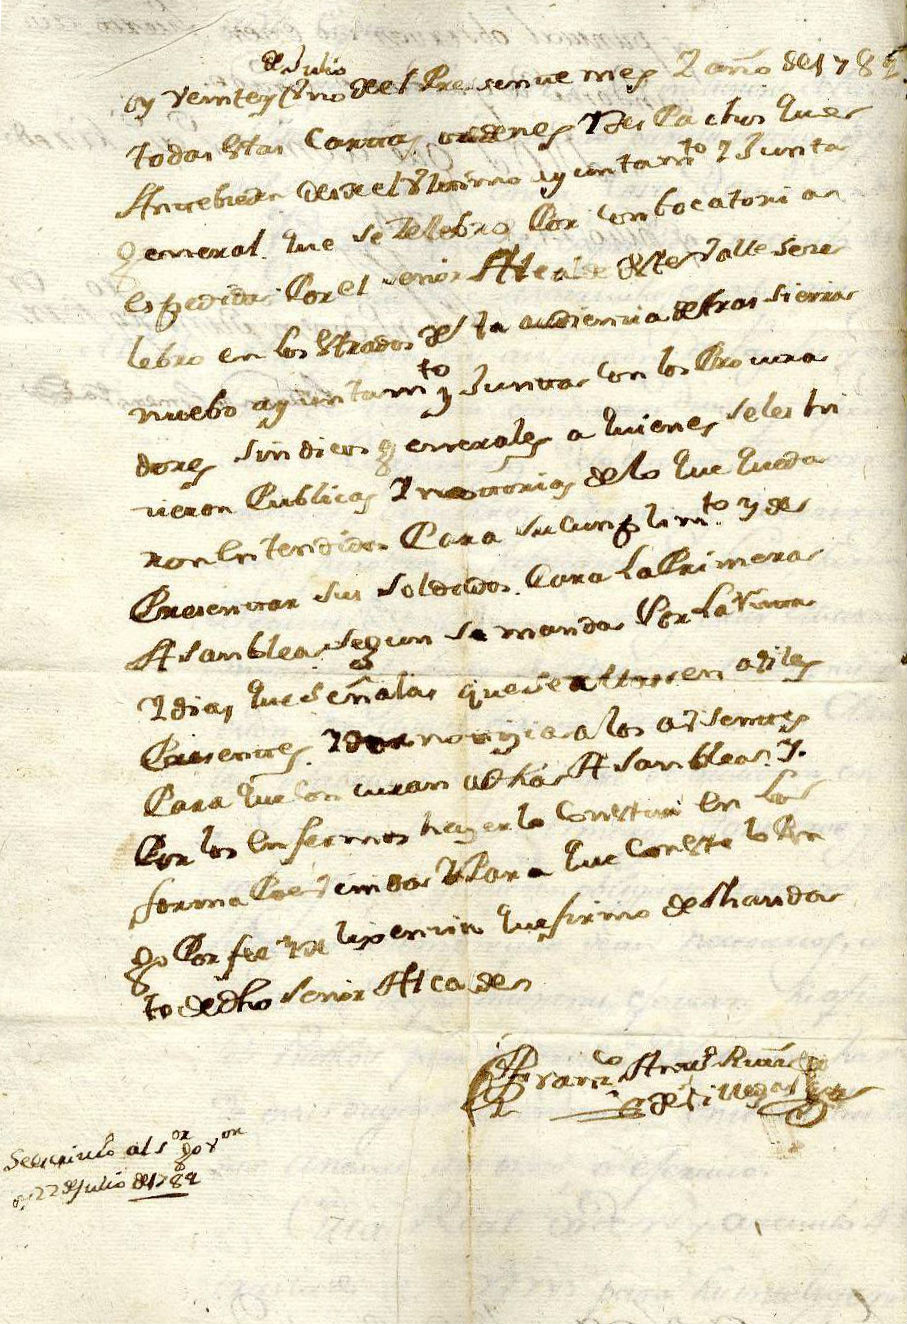 de Julio
oy veinte y Uno del Presente mes y año de 1782
todas estas Cartas ordenes Despachos que se
An rebido desde el Ultimo ayuntamto y Junta
general que se Zelebro Por conbocatorian
espedida Por el señor Alcalde deste Valle sere
lebro en los estrados de la audiencia detras sierra
nuebo ayuntamto y Junta con los Procura
dores sindicos generales a quienes se les hi
cieron Publicas y notorias de lo que queda
ron Entendidos Para su cunplimto y de
Presentar sus soldados Para La Primera
Asamblea segun se manda Por La
y dias que señala que se allasen abiles
Presentes y noticia a los ausentes
Para que concuran a dhas Asambleas y
Por los Enfermos hazerlo Constar En la
forma Prebenida y Para que Conste lo Pon
go Por fee que firmo de Mandа
to de dho señor Alcade
Franco
de Villegas
Se escriuio al Sor Gor
oy 22 de Julio de 1782